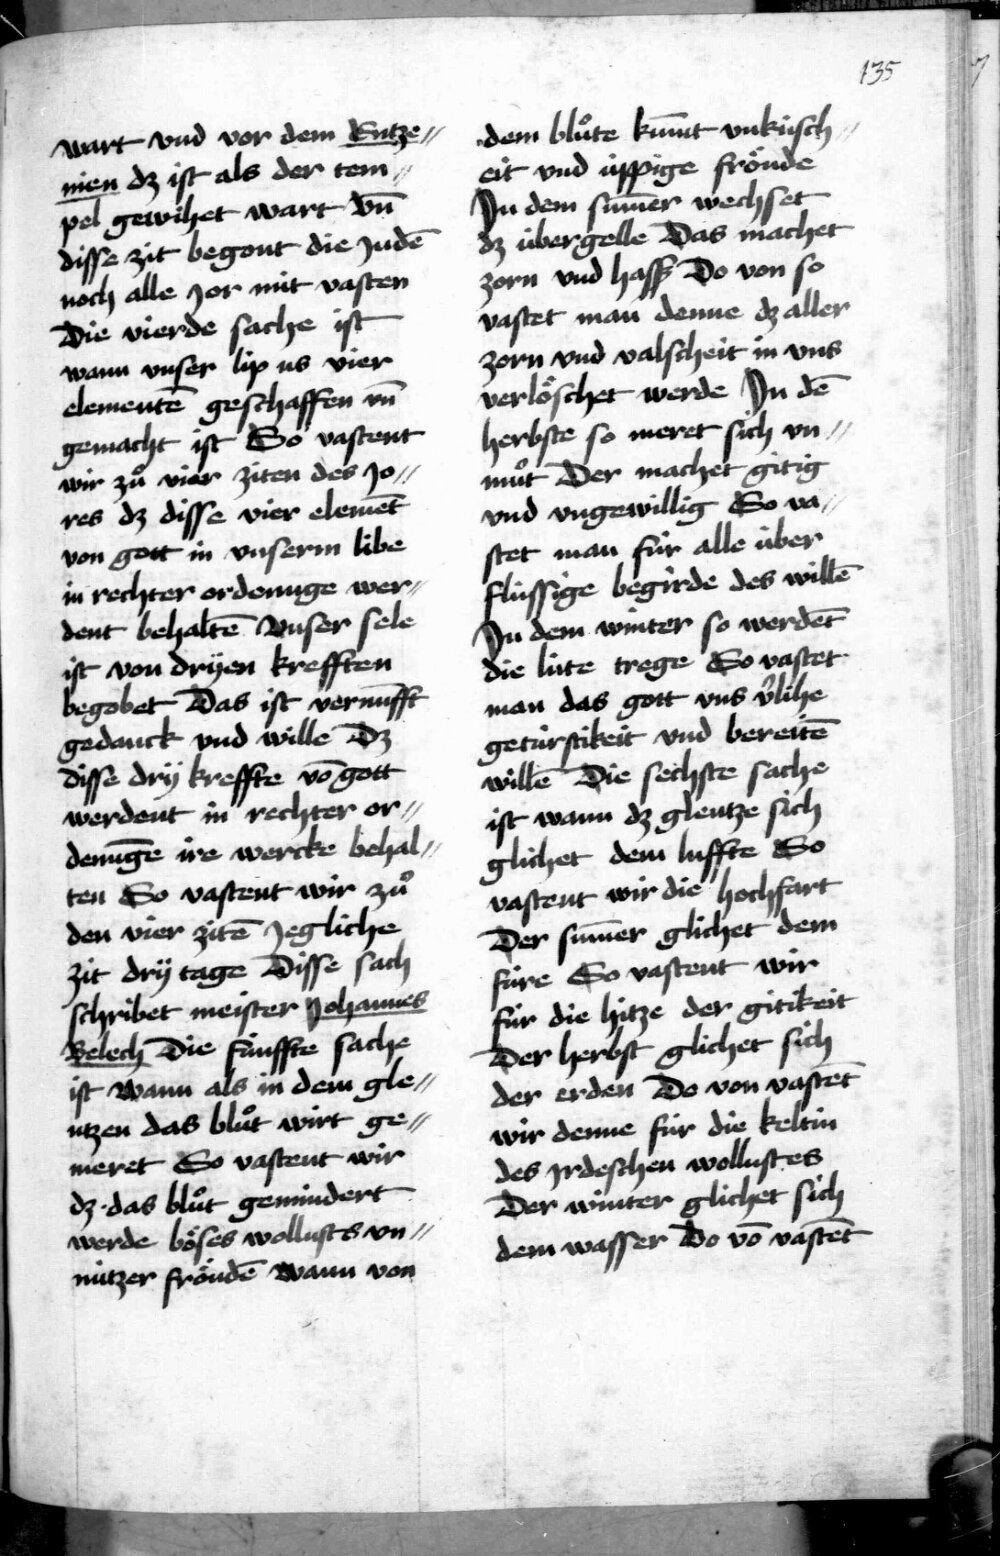 135
wart vnd vor dem Entze⸗
nien dz ist als der tem⸗
pel gewihet wart Vn̄
disse zit begont die Judē
noch alle Jor mit vasten
Die vierde sache ist
wann vnser lip us vier
elementē geschaffen vn̄
gemacht ist So vastent
wir zuͦ vier ziten des Jo⸗
res dz disse vier elemēt
von gott in vnserm libe
in rechter ordenuge wer⸗
dent behaltē Vnser sele
ist von drÿen krefften
begobet Das ist vernūfft
gedanck vnd wille Dz
disse drÿ kreffte vō gott
werdent in rechter or⸗
denūge ire wercke behal⸗
ten So vastent wir zuͦ
den vier zitē Jegliche
zit drÿ tage Disse sach
schribet meister Johannes
Belech Die fünffte sache
ist Wann als in dem gle⸗
ntzen das bluͦt wirt ge⸗
meret So vastent wir
dz das bluͦt gemindert
werde böses wollusts vn⸗
nützer fröudē Wann von
dem bluͦte kūmt vnküsch⸗
eit vnd üppige fröude
In dem sūmer wechset
dz übergelle Das machet
zorn vnd hassz Do von so
vastet man denne dz aller
zorn vnd valscheit in vns
verlöschet werde In dē
herbste so meret sich vn⸗
muͦt Der machet gitig
vnd vngewillig So va⸗
stet man für alle über
flüssige begirde des willē
In dem winter so werdēt
die lüte trege So vastet
man das gott vns v̾lihe
getürstikeit vnd bereitē
willē Die sechste sache
ist wann dz glentze sich
glichet dem luffte So
vastent wir die hochfart
Der sūmer glichet dem
füre So vastent wir
für die hitze der gitikeit
Der herbst glichet sich
der erden Do von vastēt
wir denne für die keltin
des Irdeschen wollustes
Der winter glichet sich
dem wasser Do vō vastēt